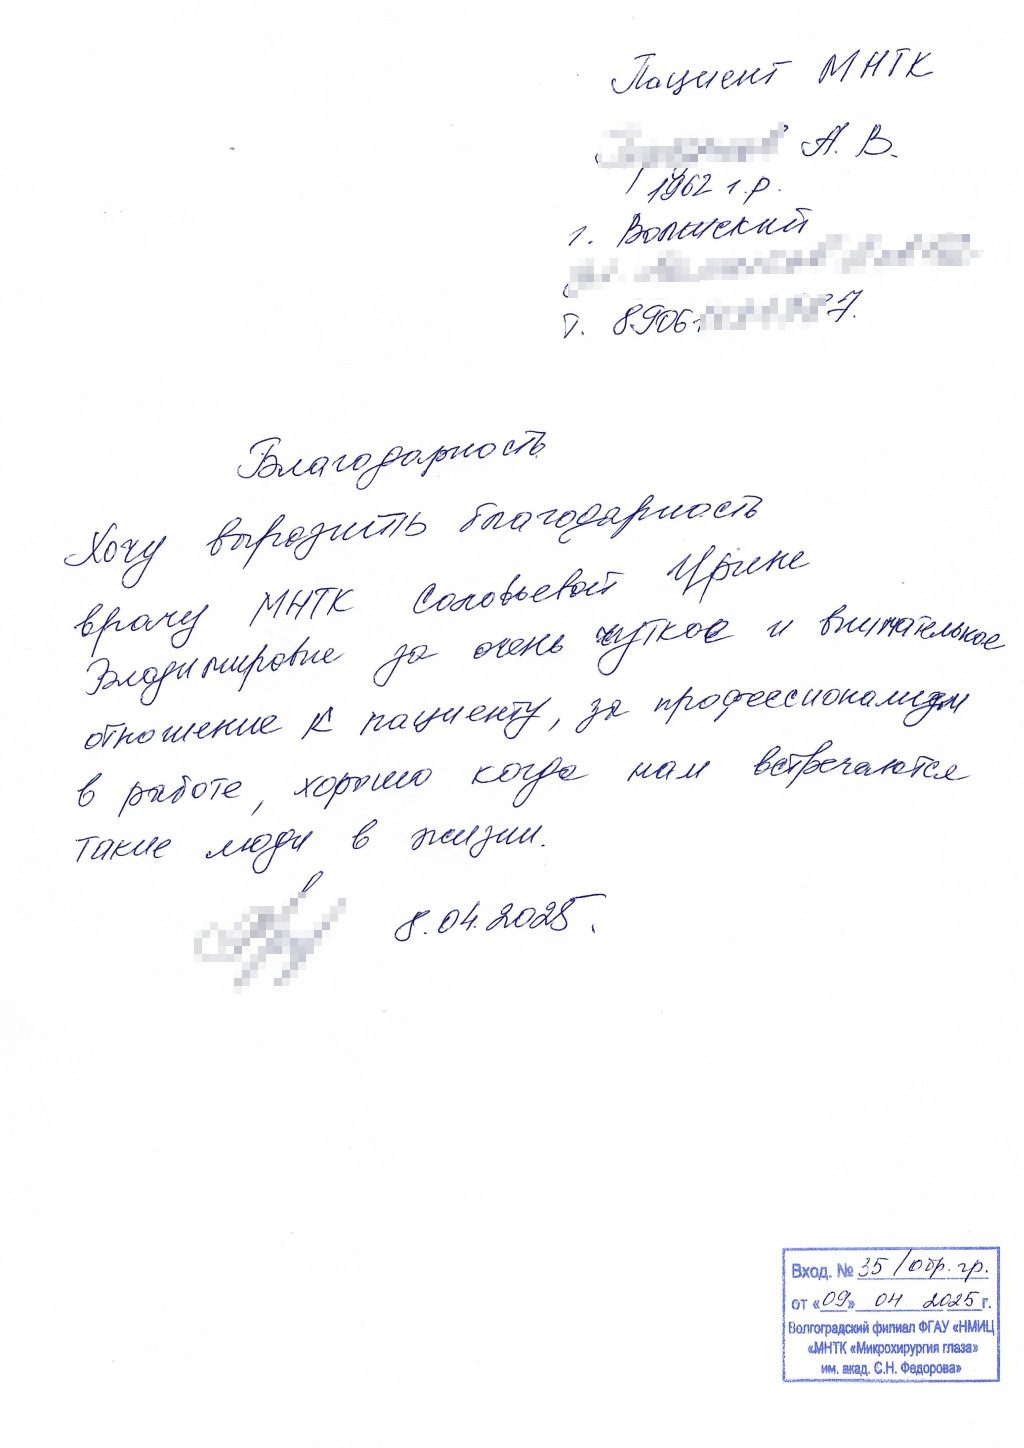 Пациент МНТК
А. В.
1962 г.р.
г. Волжский
т. 8906 7.
Благодарность
Хочу выразить благодарность
врачу МНТК Соловьевой Ирине
Владимировне за очень чуткое и внимательное
отношение к пациенту, за профессионализм
в работе, хорошо когда нам встречаются
такие люди в жизни.
8.04.2025.
Вход. № 35/обр. гр.
от «09» 04 2025 г.
Волгоградский филиал ФГАУ «НМИЦ
«МНТК «Микрохирургия глаза»
им. акад. С.Н. Федорова»